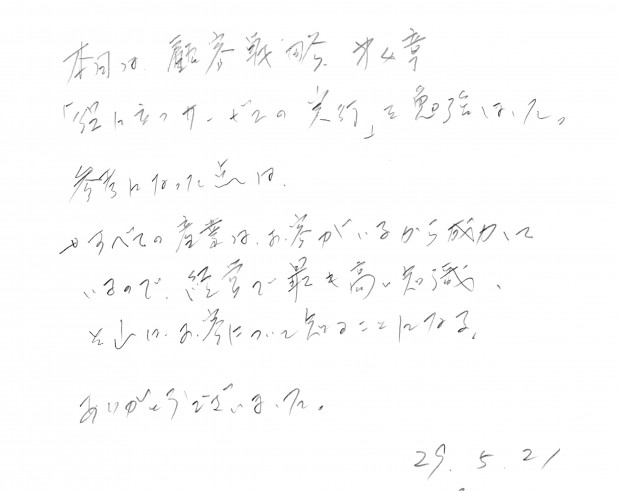 本日は、顧客戦略 第4章
「役に立つサービスの実行」を勉強しました。
参考になった点は、
すべての産業は、お客がいるから成立して
いるので、経営で最も高い知識、
お客について知ることになる。
ありがとうございました。
29. 5. 21